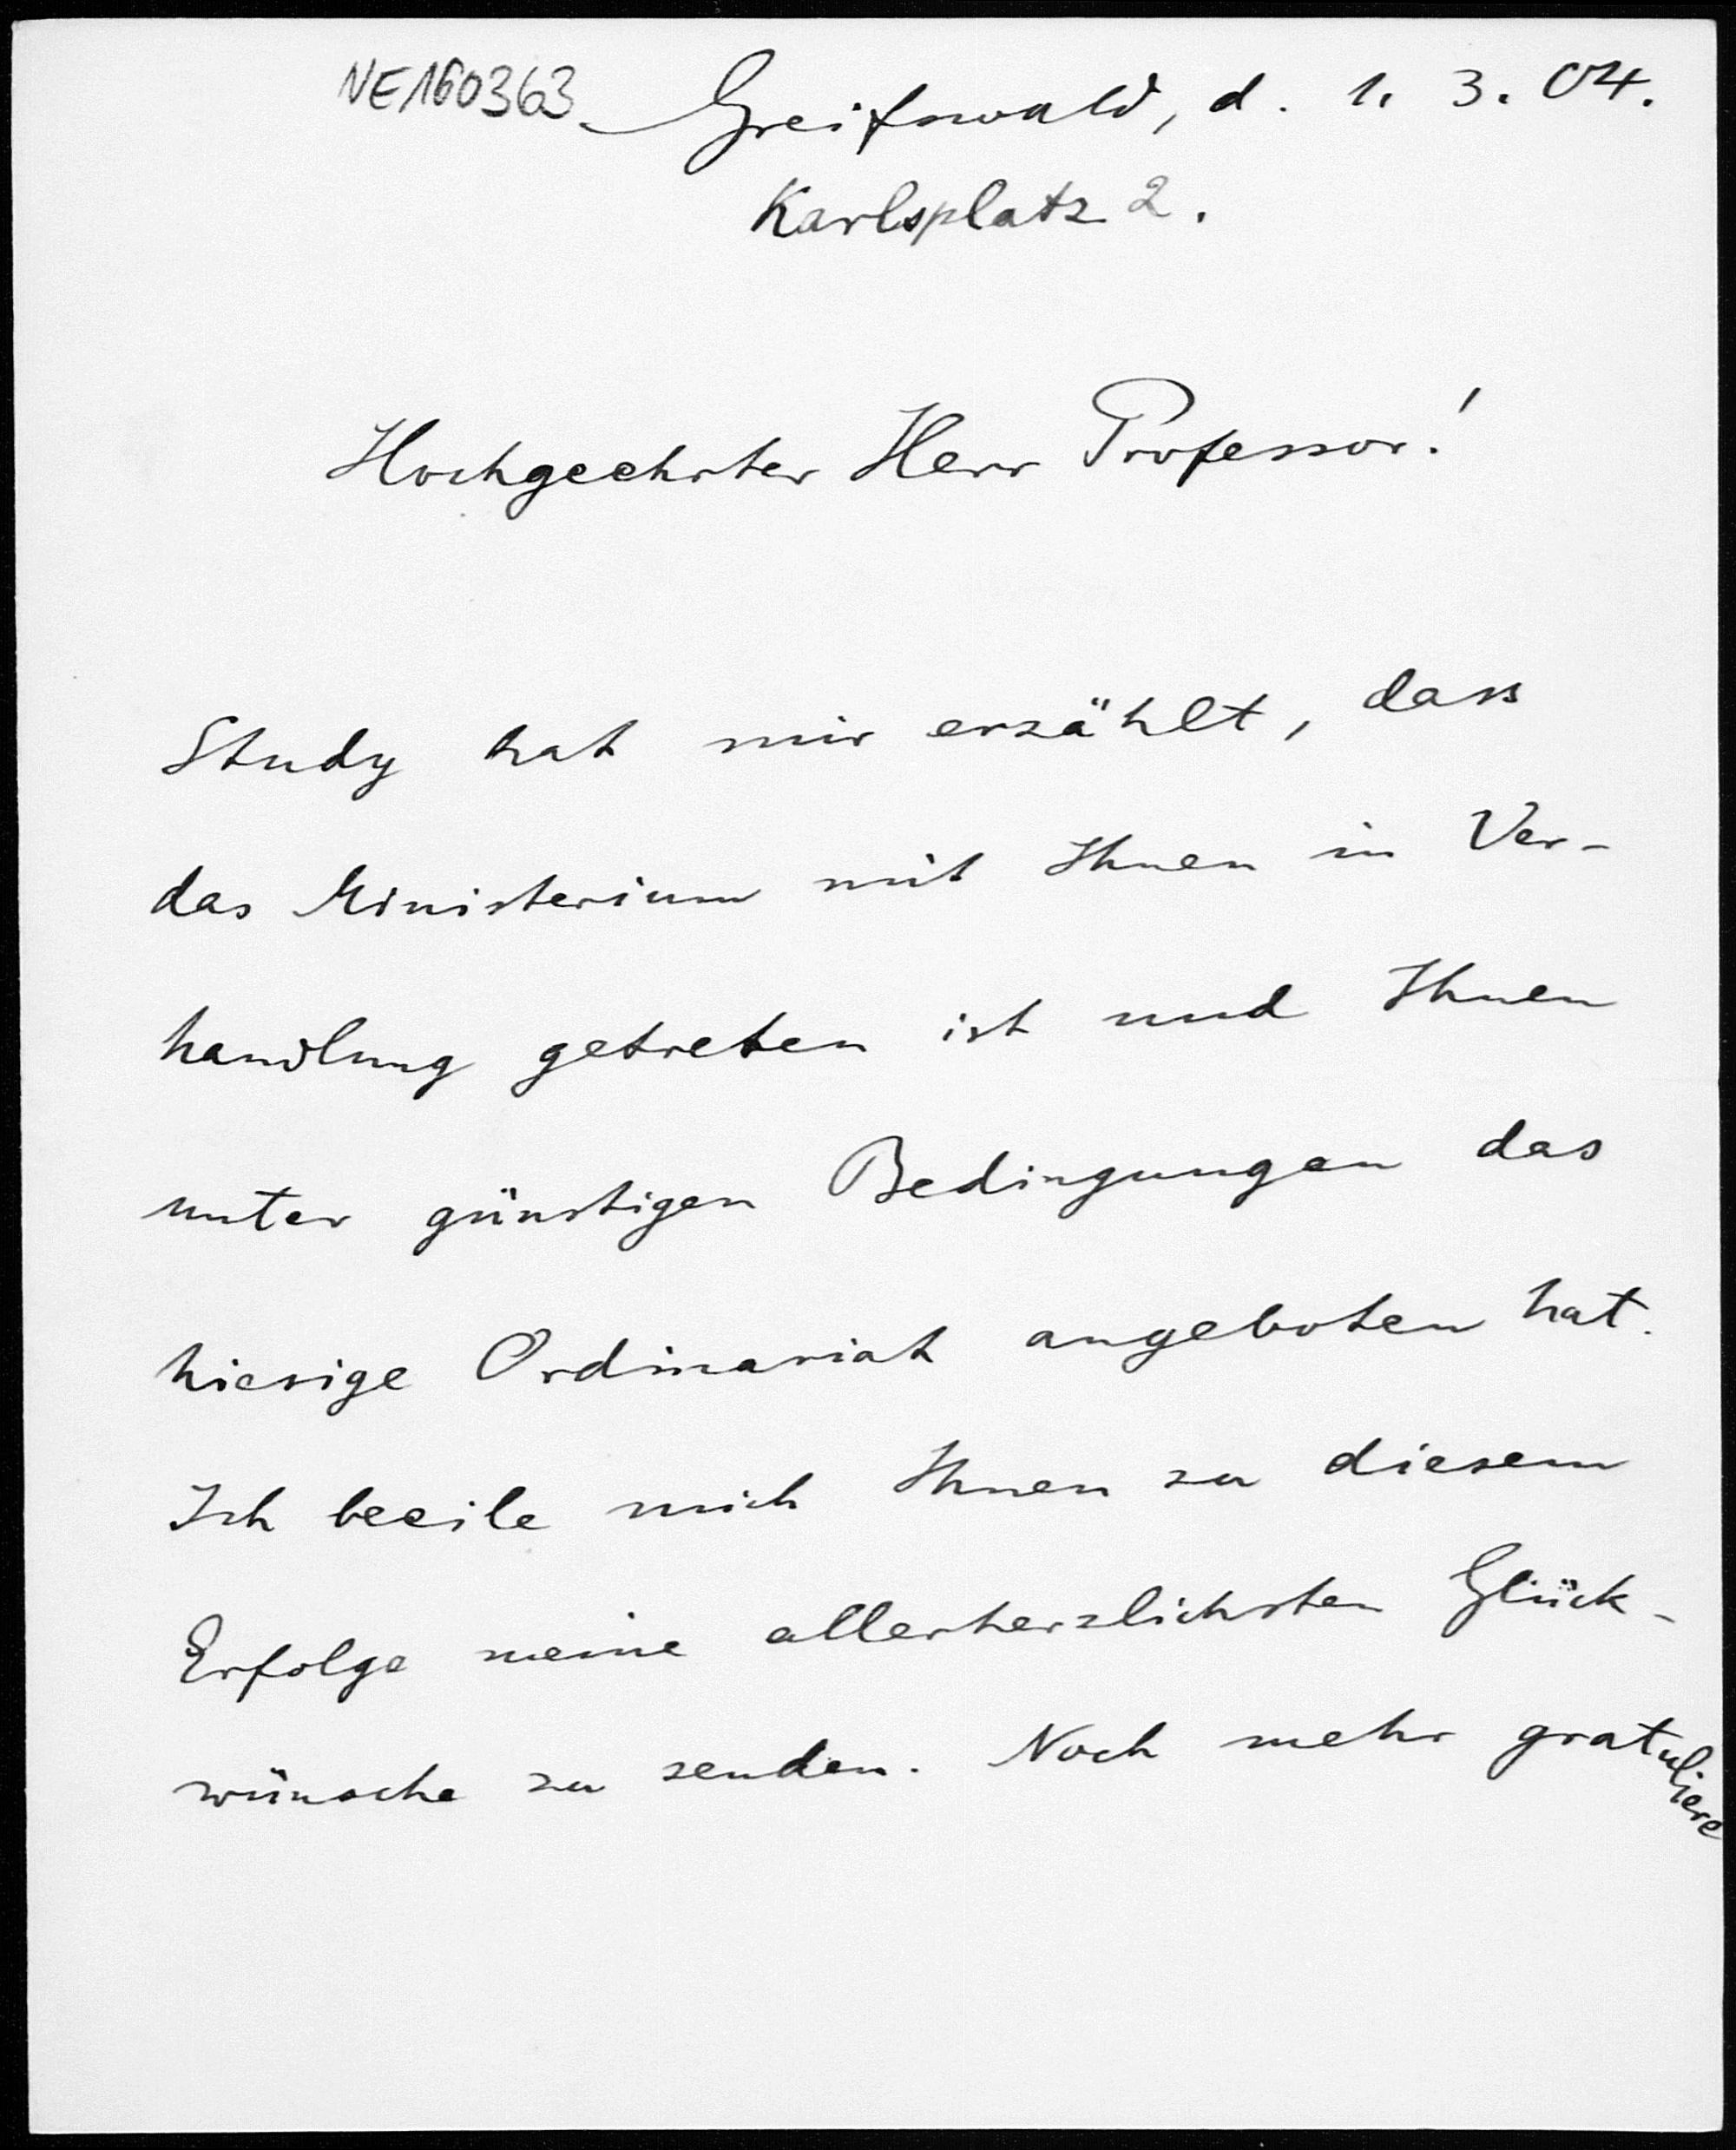 NE160363
Greifswald, d. 1. 3. 04.
Karlsplatz 2.
Hochgeehrter Herr Professor!
Study hat mir erzählt, dass
das Ministerium mit Ihnen in Ver-
handlung getreten ist und Ihnen
unter günstigen Bedingungen das
hiesige Ordinariat angeboten hat.
Ich beeile mich Ihnen zu diesem
Erfolge meine allerherzlichsten Glück-
wünsche zu senden. Noch mehr gratuliere